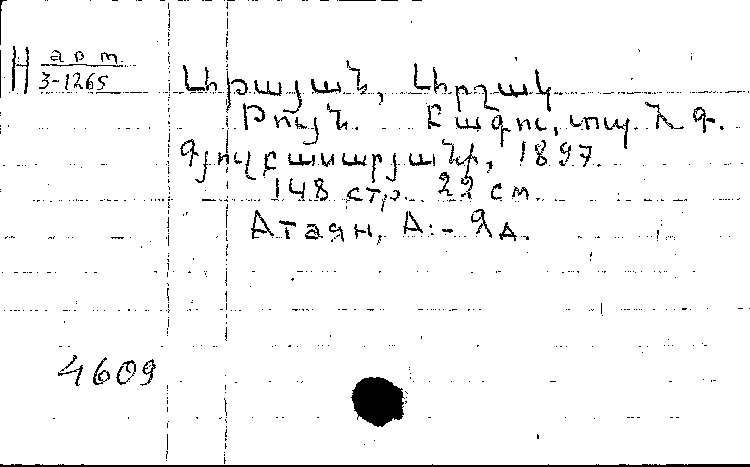 H авт.
3-1265
Աթայան, Արշակ.
Թույն. Բագու, տպ. Ն. Գ.
Գյուլբասարյանի, 1897.
148 стр. 22 см.
Атаян, А.- Яд.
4609